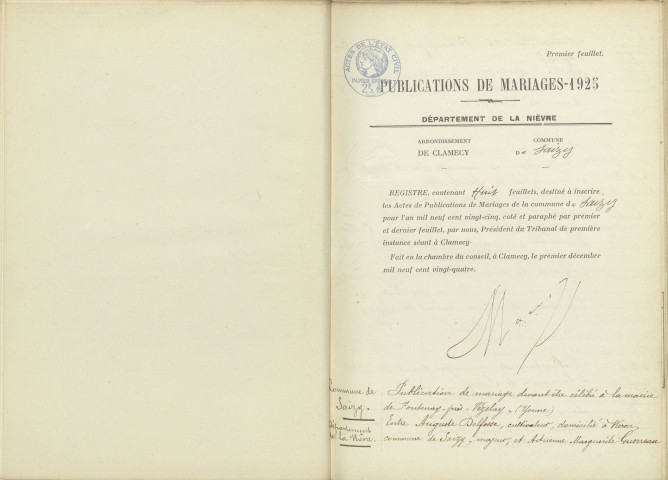 Premier feuillet.
ACTES DE L'ÉTAT CIVIL
PUBLICATIONS DE MARIAGES-1925
DÉPARTEMENT DE LA NIÈVRE
ARRONDISSEMENT
DE CLAMECY
COMMUNE
De Saizy
REGISTRE, contenant Huit feuillets, destiné à inscrire
les Actes de Publications de Mariages de la commune de Saizy
pour l'an mil neuf cent vingt-cinq, coté et paraphé par premier
et dernier feuillet, par nous, Président du Tribunal de première
instance séant à Clamecy.
Fait en la chambre du conseil, à Clamecy, le premier décembre
mil neuf cent vingt-quatre.
Commune de
Saizy.
Département
de la Nièvre.
Publication de mariage devant être célébré à la mairie
de Fontenay-près-Vézelay (Yonne)
Entre Auguste Delfosse, cultivateur, domicilié à
commune de Saizy, majeur, et Adrienne Marguerite